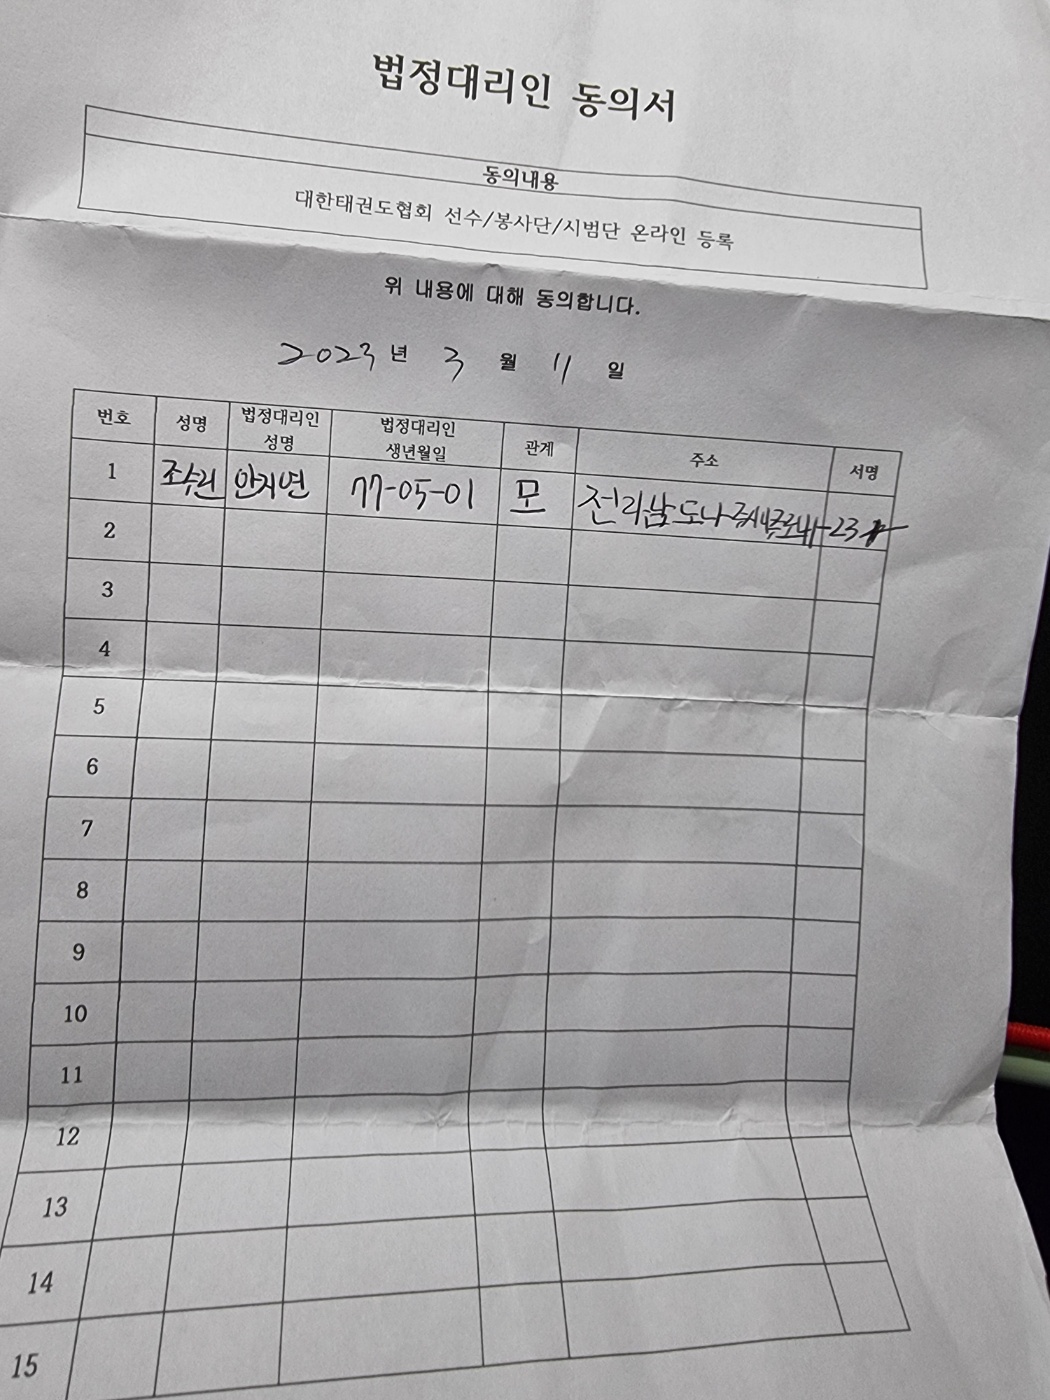 법정대리인 동의서
동의내용
대한태권도협회 선수/봉사단/시범단 온라인 등록
위 내용에 대해 동의합니다.
2023 년 3 월 11 일
번호 성명 법정대리인 성명 법정대리인 생년월일 관계 주소 서명
1 조수린 안지연 77-05-01 모 전라남도 나주시 -23
2
3
4
5
6
7
8
9
10
11
12
13
14
15